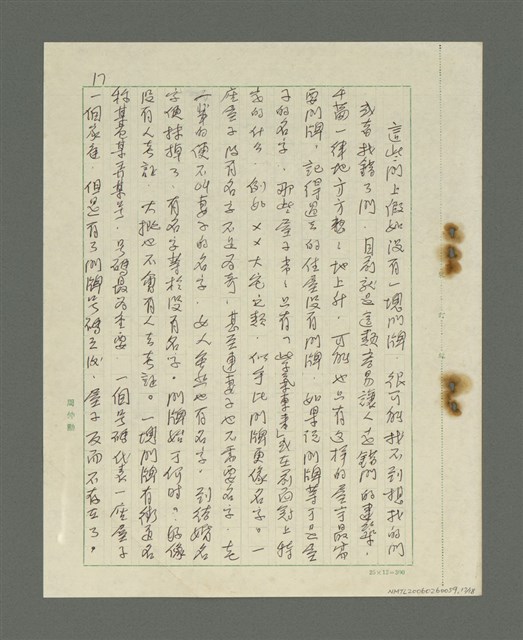 這些門上假如沒有一塊門牌．很可能找不到想找的門
或者找錯了門．目前就是這類容易讓人走錯門的建築．
千篇一律地方方整整地上升．可能也只有這樣的屋宇最需
要門牌．記得過去的住屋沒有門牌．如果說門牌等于是屋
子的名字．那些屋子常常只有「紫氣東來」或在前面冠上特
志的什么．例如××大宅之類．似乎比門牌更像名字。一
座屋子沒有名字不足為奇．甚至連妻子也不需要名字．在
的便不叫妻子的名字．女人虽然也有名字．到結婚名
字便抹掉了．有名字等於沒有名字。門牌始于何時？好像
沒有人去考証．大概也不會有人去考証。一塊門牌有街道名
称某巷某弄某号．号碼最為重要．一個号碼代表一座屋子
一個家庭．但是有了門牌号碼之後．屋子反而不存在了。
17
周伯勳
25×12=300
NMTL20060260039_1768